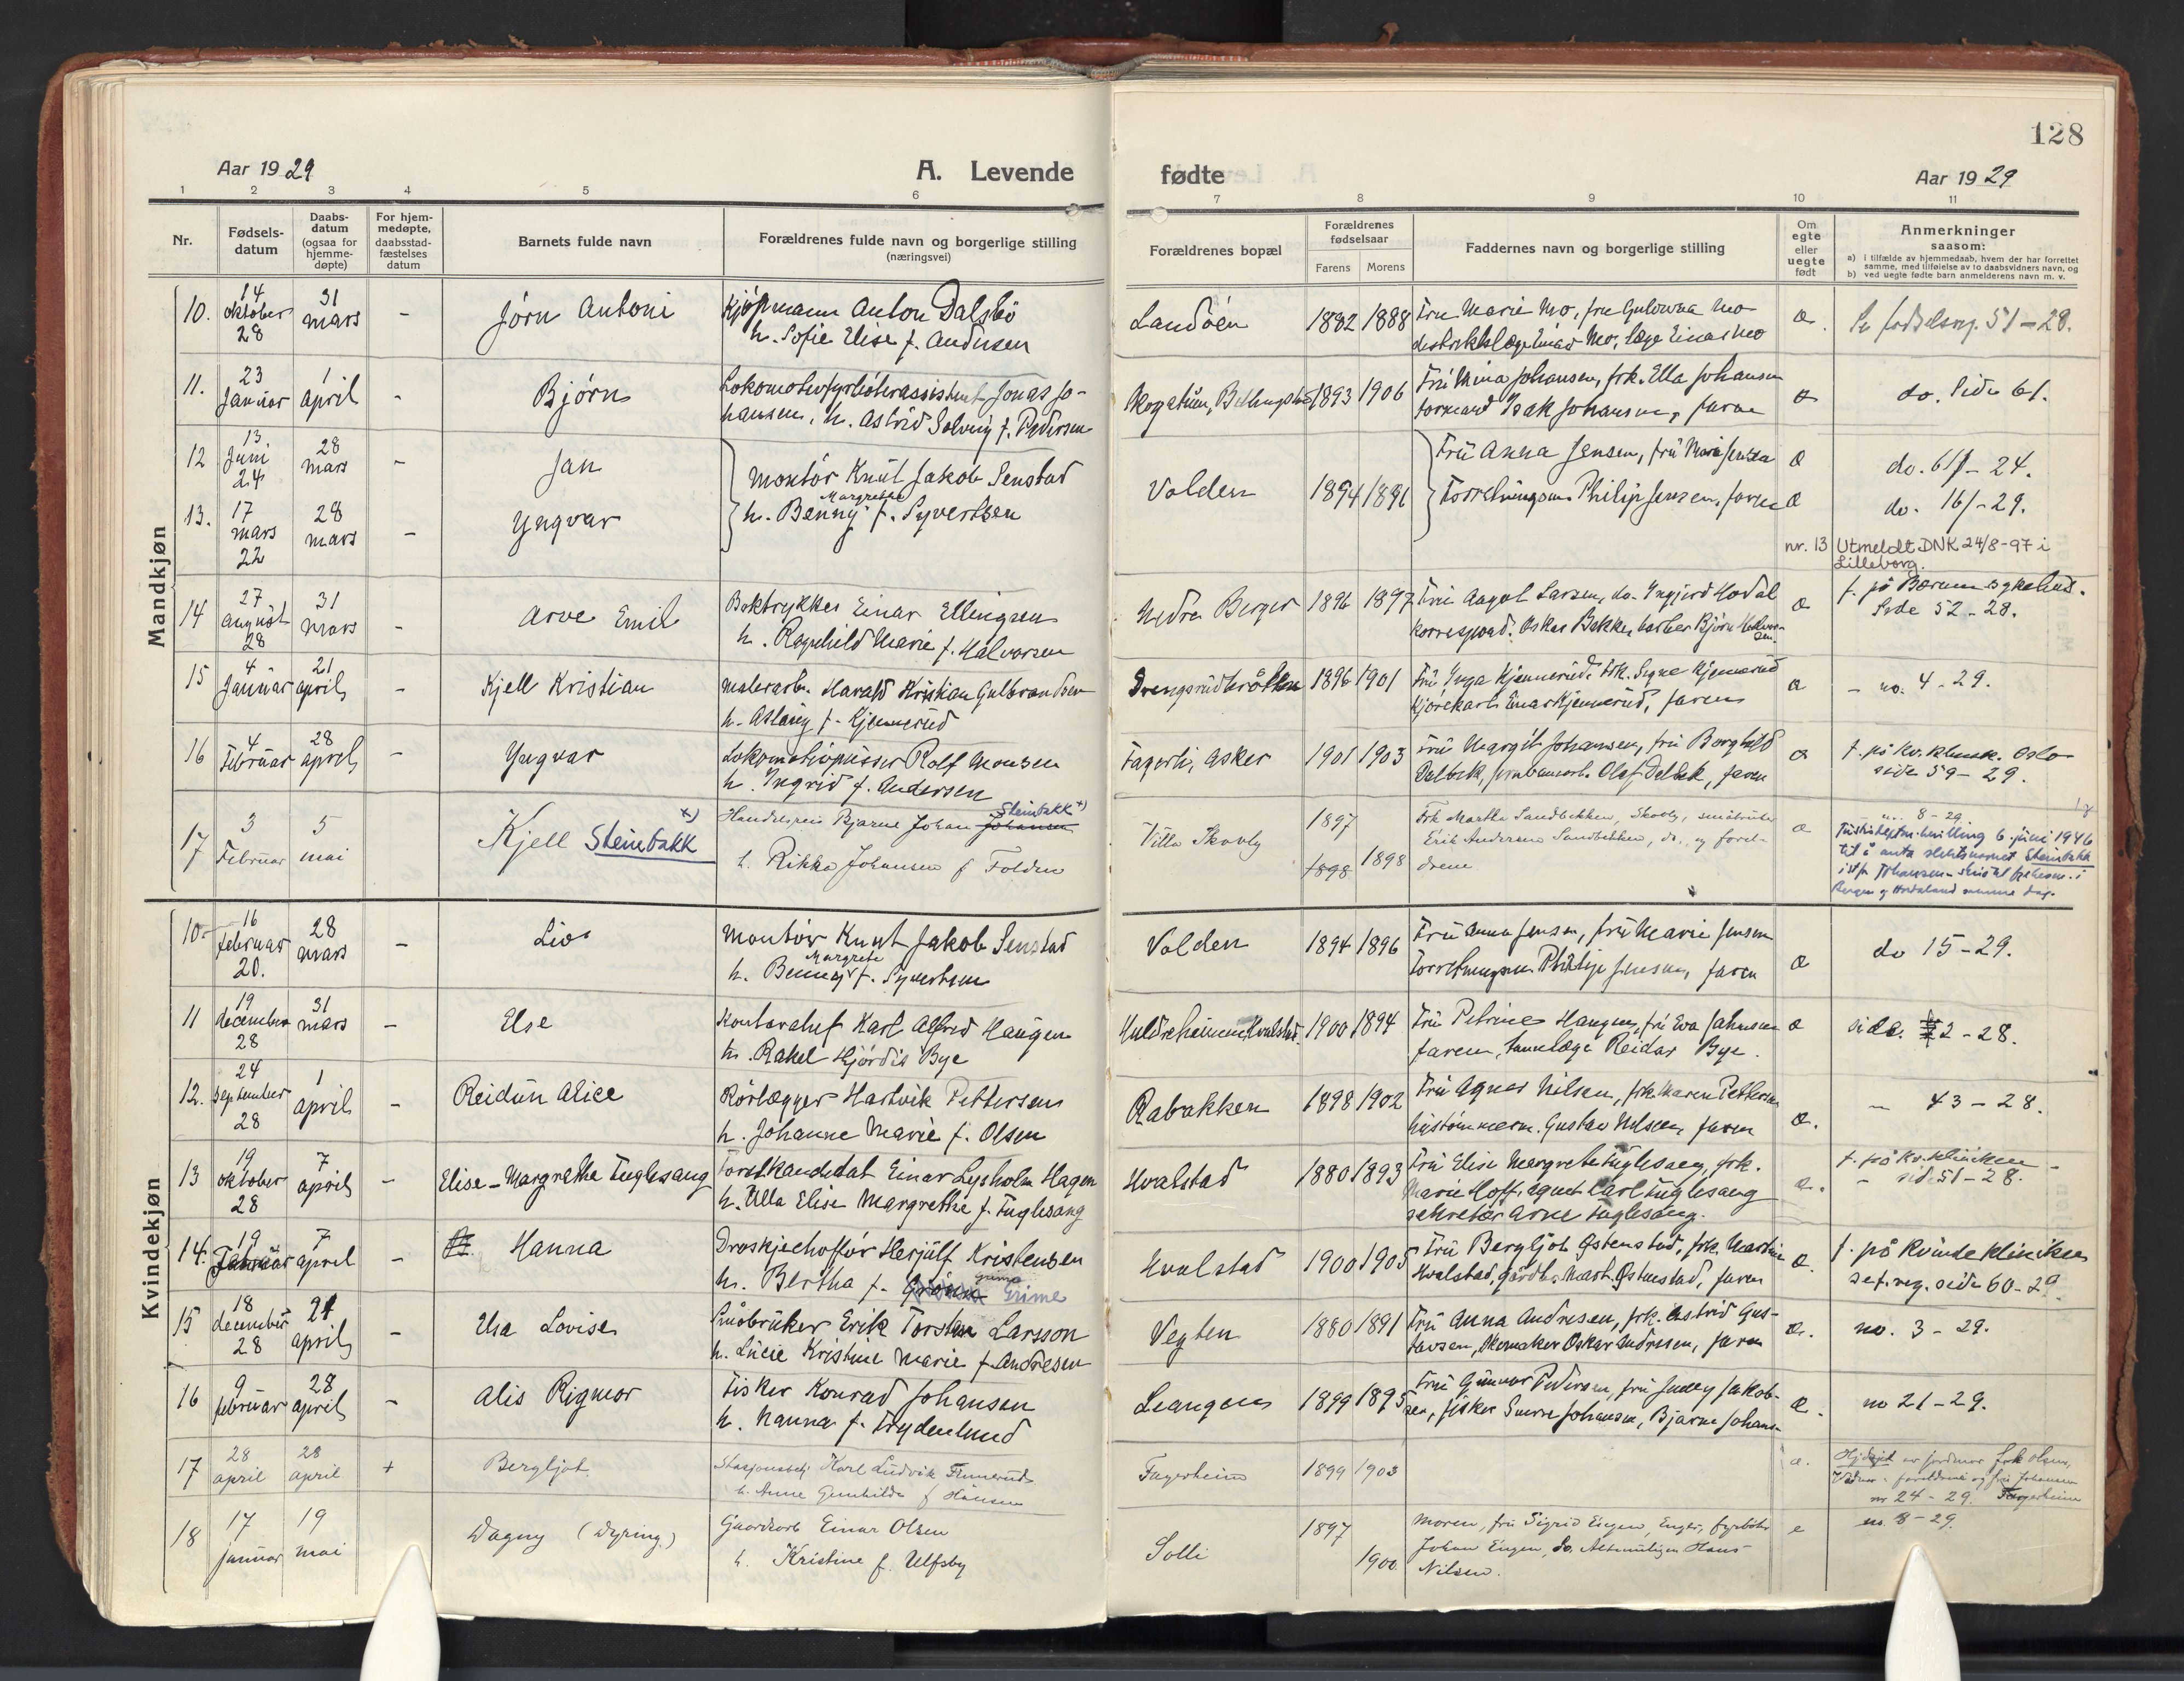 128
Aar 1929
A. Levende
fødte
Aar 1929
1 2 3 4 5 6 7 8 9 10 11
Nr.
Fødsels-
datum
Daabs-
datum
(ogsaa for
hjemme-
døpte)
For hjem-
medøpte,
daabsstad-
fæstelses
datum
Barnets fulde navn
Forældrenes fulde navn og borgerlige stilling
(næringsvei)
Forældrenes bopæl
Forældrenes
fødselsaar
Farens Morens
Faddernes navn og borgerlige stilling
Om
egte
eller
uegte
født
Anmerkninger
saasom:
a) i tilfælde av hjemmedaab, hvem der har forrettet
samme, med tilføielse av to daabsvidners navn, og
b) ved uegte fødte barn anmelderens navn m. v.
Mandkjøn
10. 14 oktober 28
31 mars
-
Jørn Antoni
Kjøpmann Anton Dalsbö
h. Sofie Elise f. Andersen
Landöen
1882 1888
Fru Marie Mo, fru Mo
distriktslæge Einar Mo, læge Einar Mo
æ.
Se fødselsreg. 51-28.
11. 23 Januar
1 april
-
Bjørn
Jonas Jo-
hansen, h. Astrid Solveig f. Pedersen
1893 1906
Frü Mina Johansen, frk. Ella Johansen
Isak Johansen, faren
æ
do. Side 61.
12 13 Juni 24
28 mars
-
Jan
Montör Knüt Jakob Senstad
h. Benny Margrethe f. Syvertsen
Volden
1894 1896
Frü Anna Jensen, frü Marie Jensen
Philip Jensen, faren
æ
do. 61/-24.
13. 17 mars 22
28 mars
-
Yngvar
æ
do. 16/-29.
nr. 13 Utmeldt DNK 24/8-97 i
Lilleborg.
14 27 august 28
31 mars
-
Arve Emil
Boktrykker Einar Ellingsen
h. Ragnhild Marie f. Halvorsen
Nedre Berger
1896 1897
Frü Aagot Larsen, do. Ingjerd Hodal
korrespond. Oskar Bakken, barber Bjørn Halvor-
sen.
æ
f. på Bærum sykehus.
Side 52-28.
15 4 Januar
21 april
-
Kjell Kristian
Malerarb. Harald Kristian Gulbrandsen
h. Aslaug f. Kjennerüd
Drengsrüdbråtten
1896 1901
Frü Inga Kjennerüd, frk. Signe Kjennerüd
kjörekarl Einar Kjennerüd, faren
æ
- no. 4-29.
16 4 Februar
28 april
-
Yngvar
Lokomotivpüsser Rolf Monsen
h. Ingrid f. Andersen
Fagerli, Asker
1901 1903
Frü Margit Johansen, frü Borghild
Dalbek, jernbanearb. Olaf Dalbek, faren
æ
f. på Kv. klinik. Oslo
side 59-29.
17 3 Februar
5 mai
Kjell Steinbakk x)
Handelsreis Bjarne Johan Johansen Steinbakk x)
h. Rikka Johansen f Folden
Villa Skovly
1897
1898 1898
Frk Martha Sandbekken, Skovly, småbruker
Erik Andersen Sandbekken, do., og forel-
drene
æ
- nr. 8-29
Justisdeptm. bevilling 6. juni 1946
til å anta slektsnavnet Steinbakk
istf. Johansen
Bergen og Hordaland samme dag.
Kvindekjøn
10. 16 februar 20.
28 mars
-
Liv
Montör Knut Jakob Senstad
h. Benny Margrete f. Syvertsen
Volden
1894 1896
Frü Anna Jensen, frü Marie Jensen
Philip Jensen, faren
æ
do 15-29.
11 19 december 28
31 mars
-
Else
Kontorchef Karl Alfred Haugen
h. Rakel Hjördis Bye
Huldreheimen, Hvalstad.
1900 1894
Frü Petrine Haugen, frü Eva Johnsen
faren, tannlæge Reidar Bye.
æ
side. 2-28.
12. 24 september 28
1 april
-
Reidün Alice
Rörlægger Hartvik Pettersen
h. Johanne Marie f. Olsen
Rabakken
1898 1902
Frü Agnes Nilsen, frk. Maren Pettersen
hüstömmerm. Gustav Nilsen, faren
æ.
- 43-28.
13 19 oktober 28
7 april
-
Elise-Margrethe Fuglesang
Forstkandidat Einar Lysholm Hagen
h. Ulla Elise Margrethe f. Fuglesang
Hvalstad
1880 1893
Frü Elise Margrete Fuglesang, frk.
Marie Hoff, agent Carl Fuglesang
sekretær Arne Fuglesang.
æ.
f. på Kv. kliniken
- side 51-28.
14. 19 Februar
7 april
-
Hanna
Droskjechofför Herjülf Kristensen
h. Bertha f. Grime
Hvalstad
1900 1905
Frü Bergljot Østenstad, frk. Martha
Hvalstad, gårdbr. Mart. Østenstad, faren
æ.
f. på Kvindekliniken
se f.reg. side 60-29.
15 18 december 28
21 april
-
Elsa Lovise
Småbrüker Erik Torsten Larsson
h. Lücie Kristine Marie f. Andresen
Vegten
1880 1891
Frü Anna Andresen, frk. Astrid Gus-
tavsen, skomaker Oskar Andresen, faren
æ.
no. 3-29.
16 9 februar
28 april
-
Alis Rigmor
Fisker Konrad Johansen
h. Nanna f. Frydenlund
Leangen
1899 1895
Frü Gunvor Pedersen, frü Jenny Jakob-
sen, fisker Sverre Johansen, Bjarne Johans-
æ.
no 21-29.
17 28 april
28 april
+
Bergljot
Stasjonsbetj Karl Ludvik Finnerud
h. Anne Gunhilda f Hansen
Fagerheim
1899 1903
æ.
Hjdøpt av jordmor frk Olsen,
Vidner: foreldrene og fru Johansen
nr 24-29. Fagerheim
18 17 januar
19 mai
Dagny (Dyring)
Gaardsarb Einar Olsen
h. Kristine f. Ulfsby
Solli
1897
1900
Moren, frü Sigrid Engen, Enger, fyrbøter
Johan Engen, do,
Hans
Nilsen.
e
nr. 8-29.